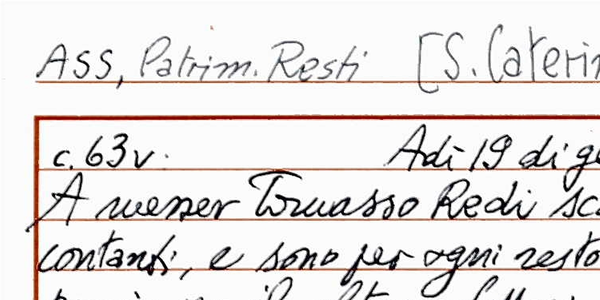 ASS, Patrim. Resti [S. Caterin
c. 63v. Adì 19 di ge
A messer Tomasso Redi sc
contanti, e sono per ogni resto